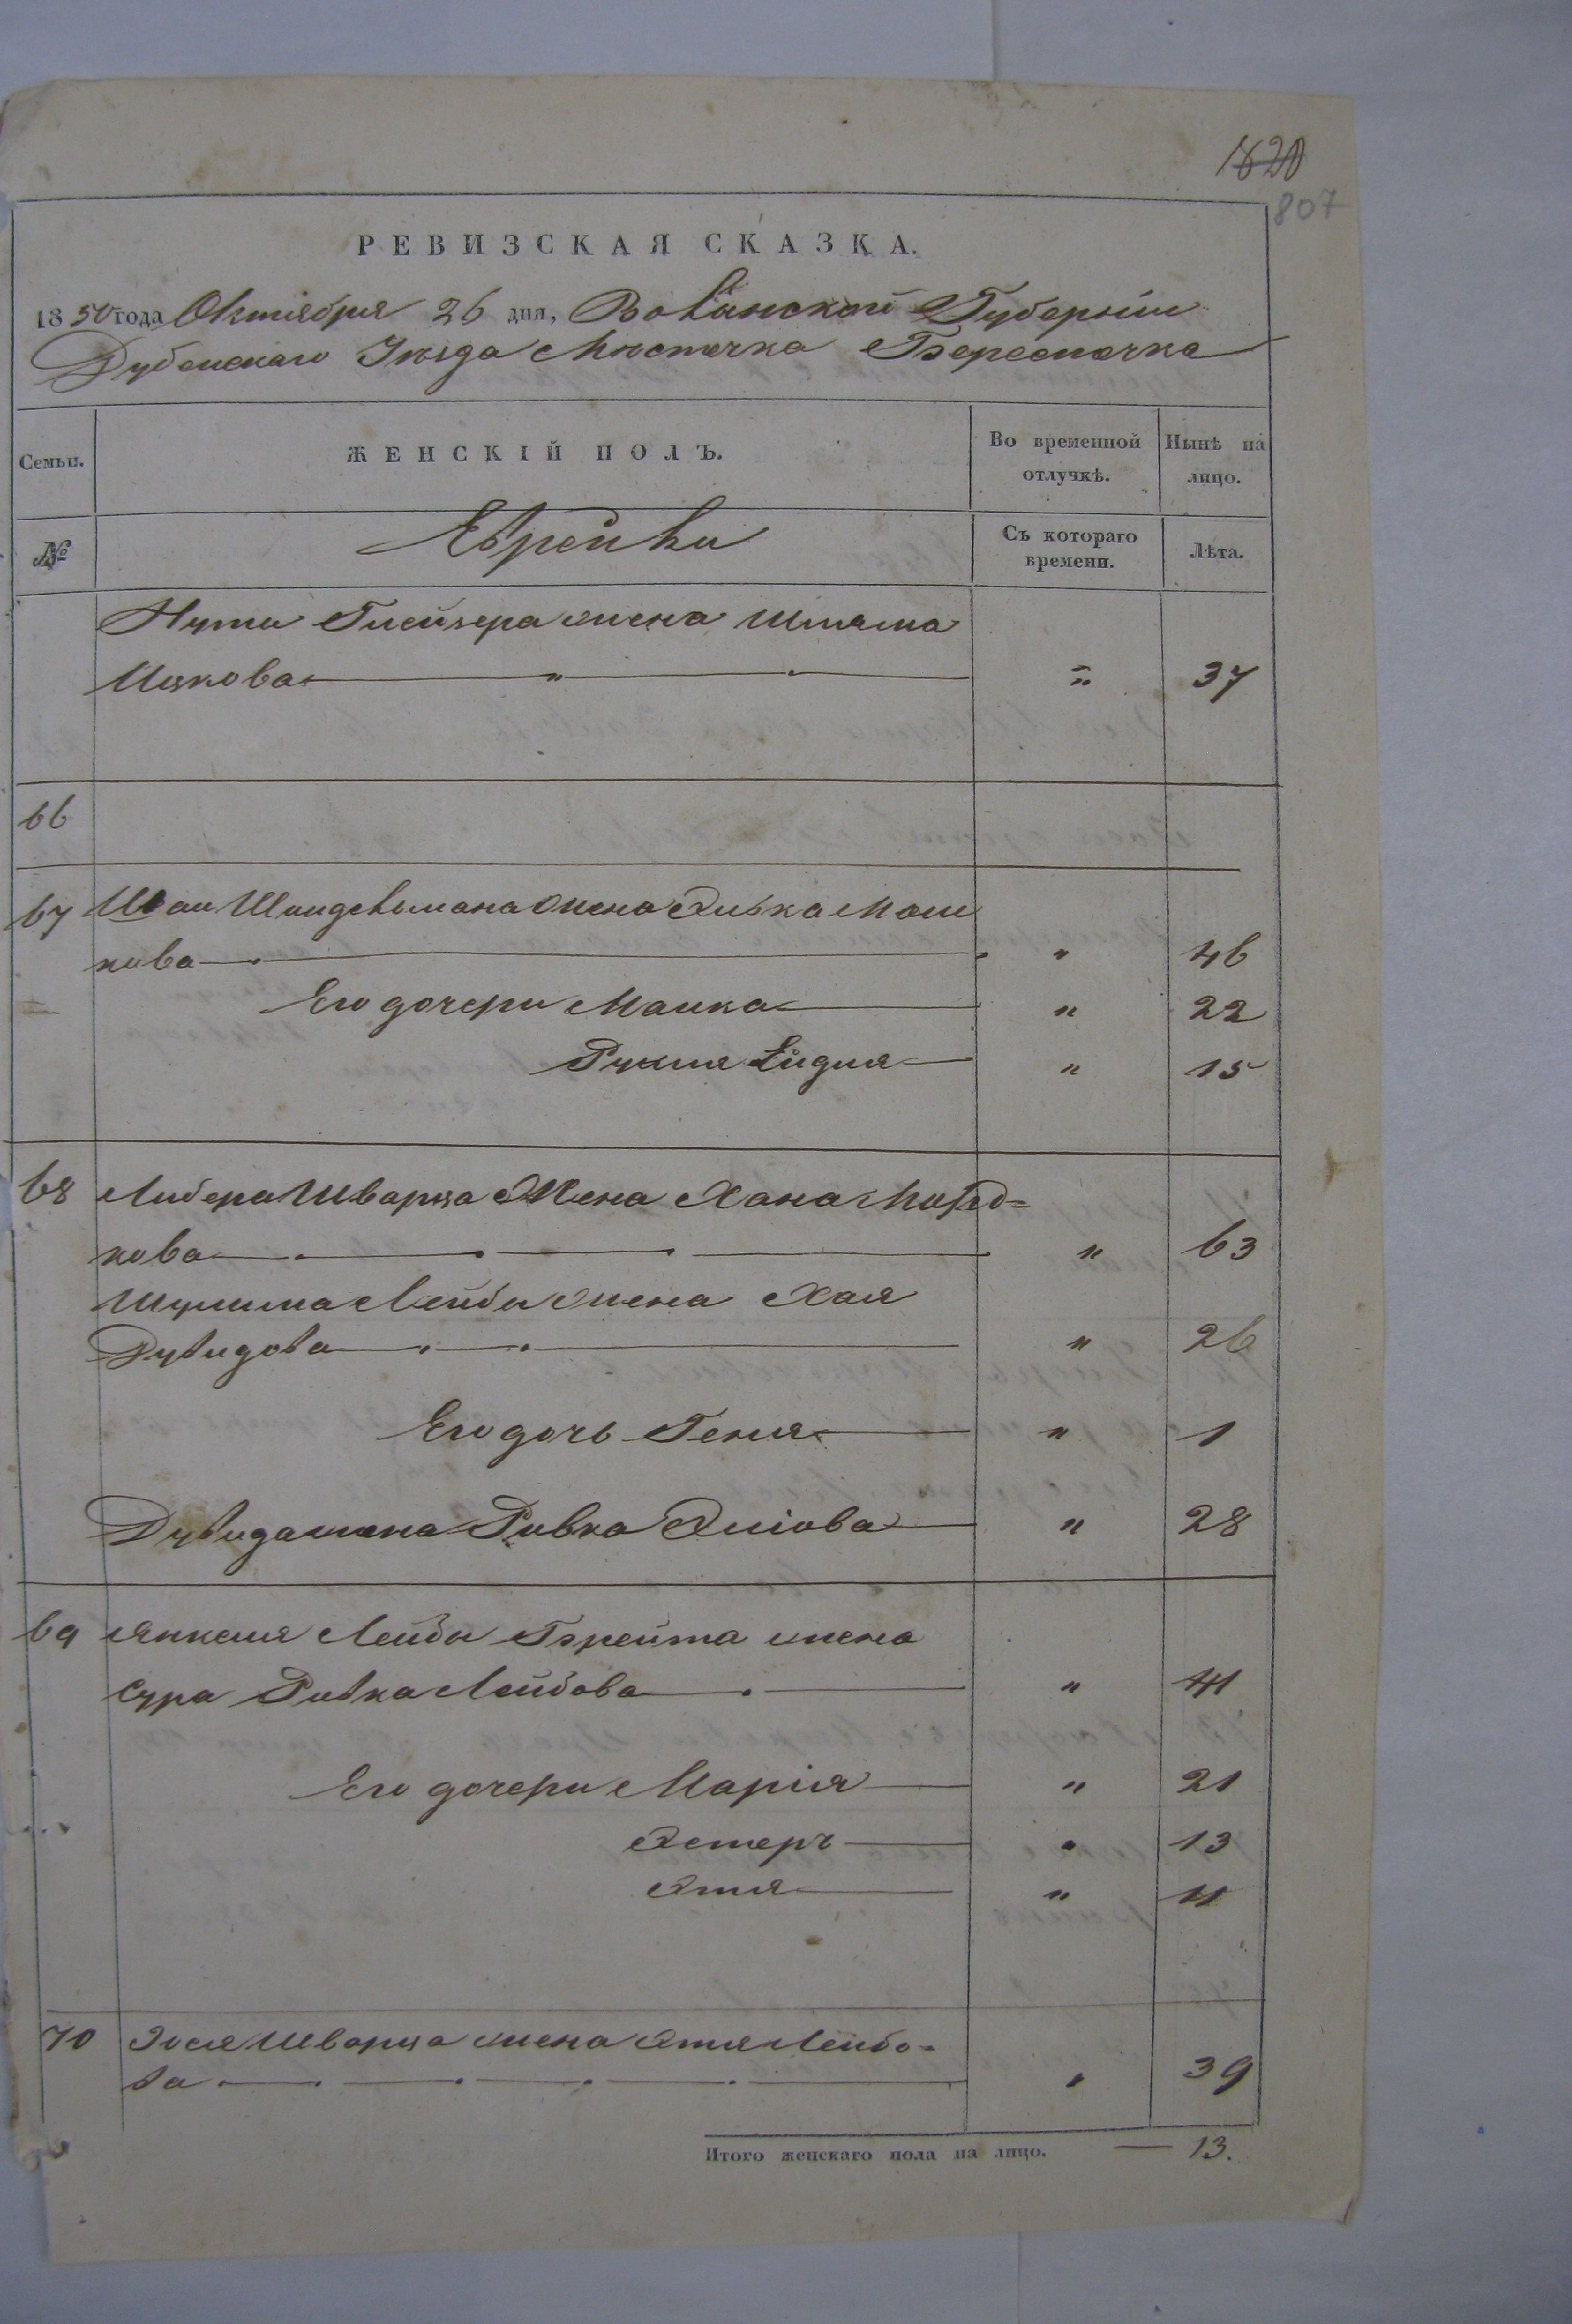 1820
807
РЕВИЗСКАЯ СКАЗКА.
1850 года Октября 26 дня, Волынской Губерніи
Дубенскаго Уѣзда Мѣстечка Берестечка
Семьи.
ЖЕНСКІЙ ПОЛЪ.
Во временной отлучкѣ.
Нынѣ на лицо.
№
Еврейки
Съ котораго времени.
Лѣта.
Нуты жена
Ицкова " = 37
66
67 Шаи Шпидельмана жена Элька Мош
кова " 46
Его дочери Малка " 22
Рухля " 15
68 Либера Шварца Жена Хана Мордо=
кова " 63
Шулима Лейбы жена Хая
Дувидова " 26
Его дочь Геня " 1
Дувида жена Ривка Эліова " 28
69 Янкеля Лейбы Брейта жена
Сура Ривка Лейбова " 41
Его дочери Марія " 21
Эстеръ " 13
Этля " 11
70 Іося Шварца жена Этля Лейбо=
ва " 39
Итого женскаго пола на лицо. — 13.